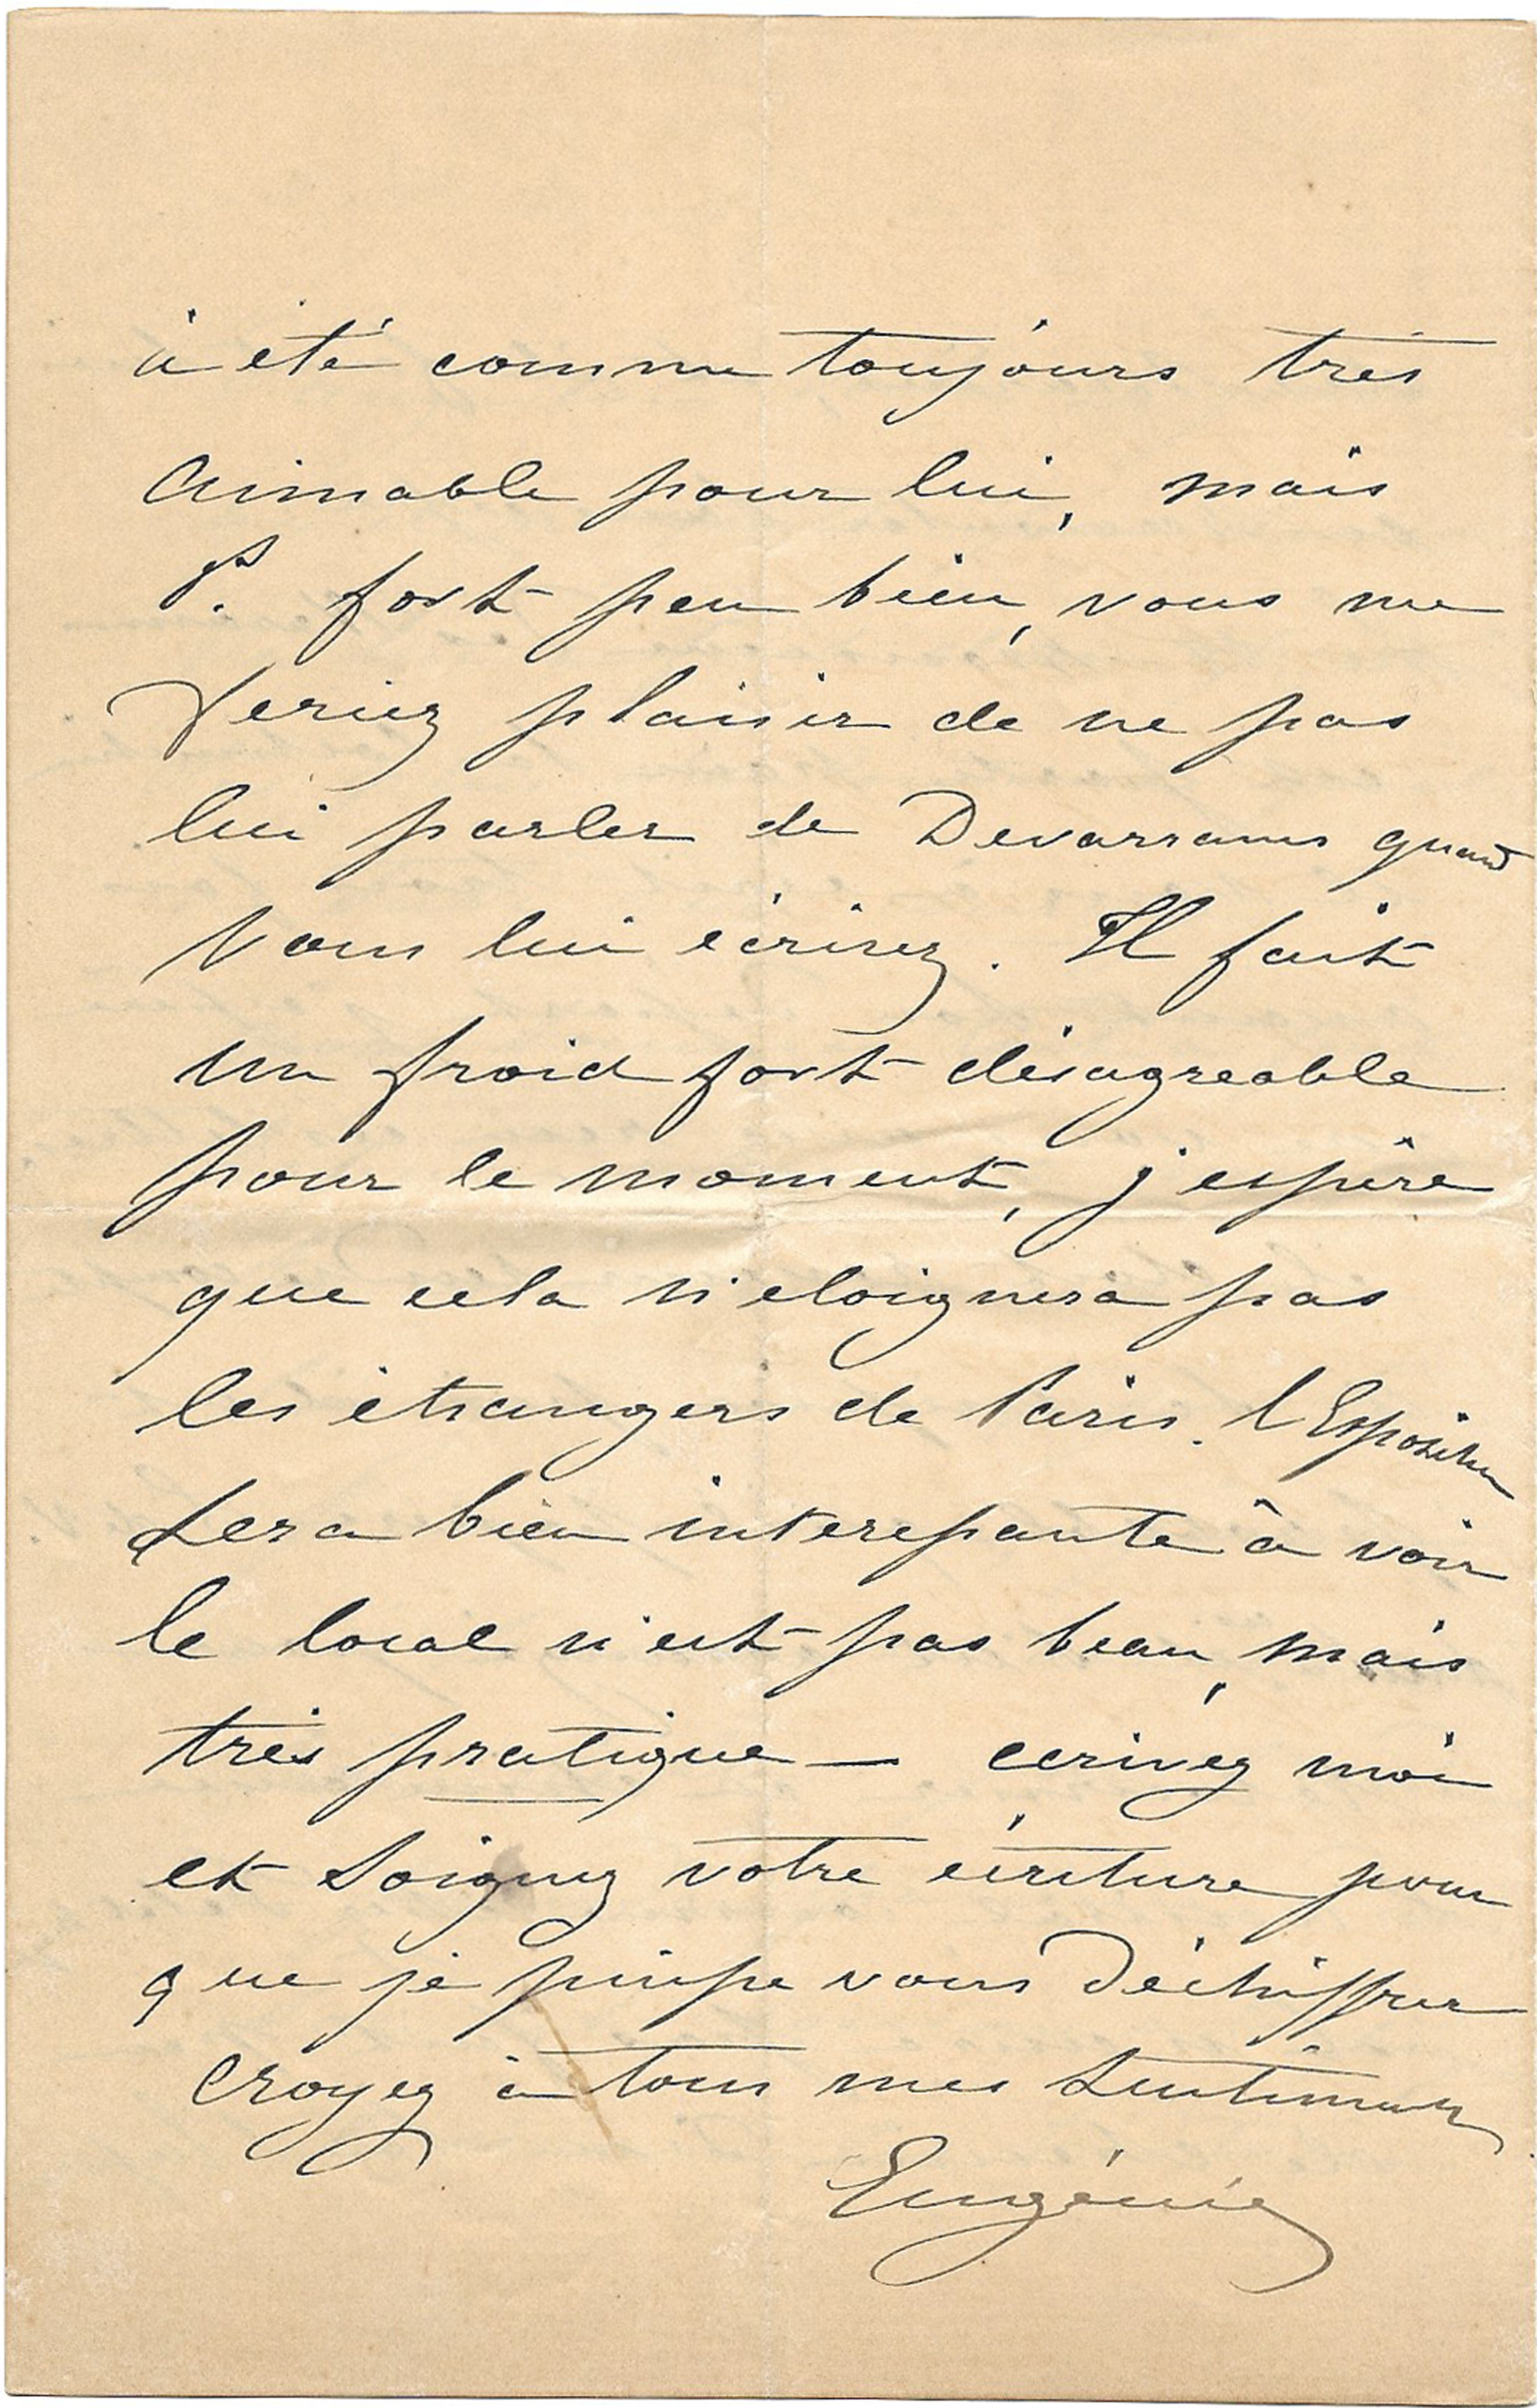 à été comme toujours très
aimable pour lui, mais
P. fort peu bien, vous me
feriez plaisir de ne pas
lui parler de quand
vous lui écrirez. Il fait
un froid fort désagreable
pour le moment, j'espère
que cela n'eloignera pas
les étrangers de Paris. l'Exposition
sera bien interessante à voir
le local n'est pas beau, mais
très pratique — ecrivez moi
et soignez votre écriture pour
que je puisse vous déchiffrer
croyez à tous mes sentiments
Eugénie